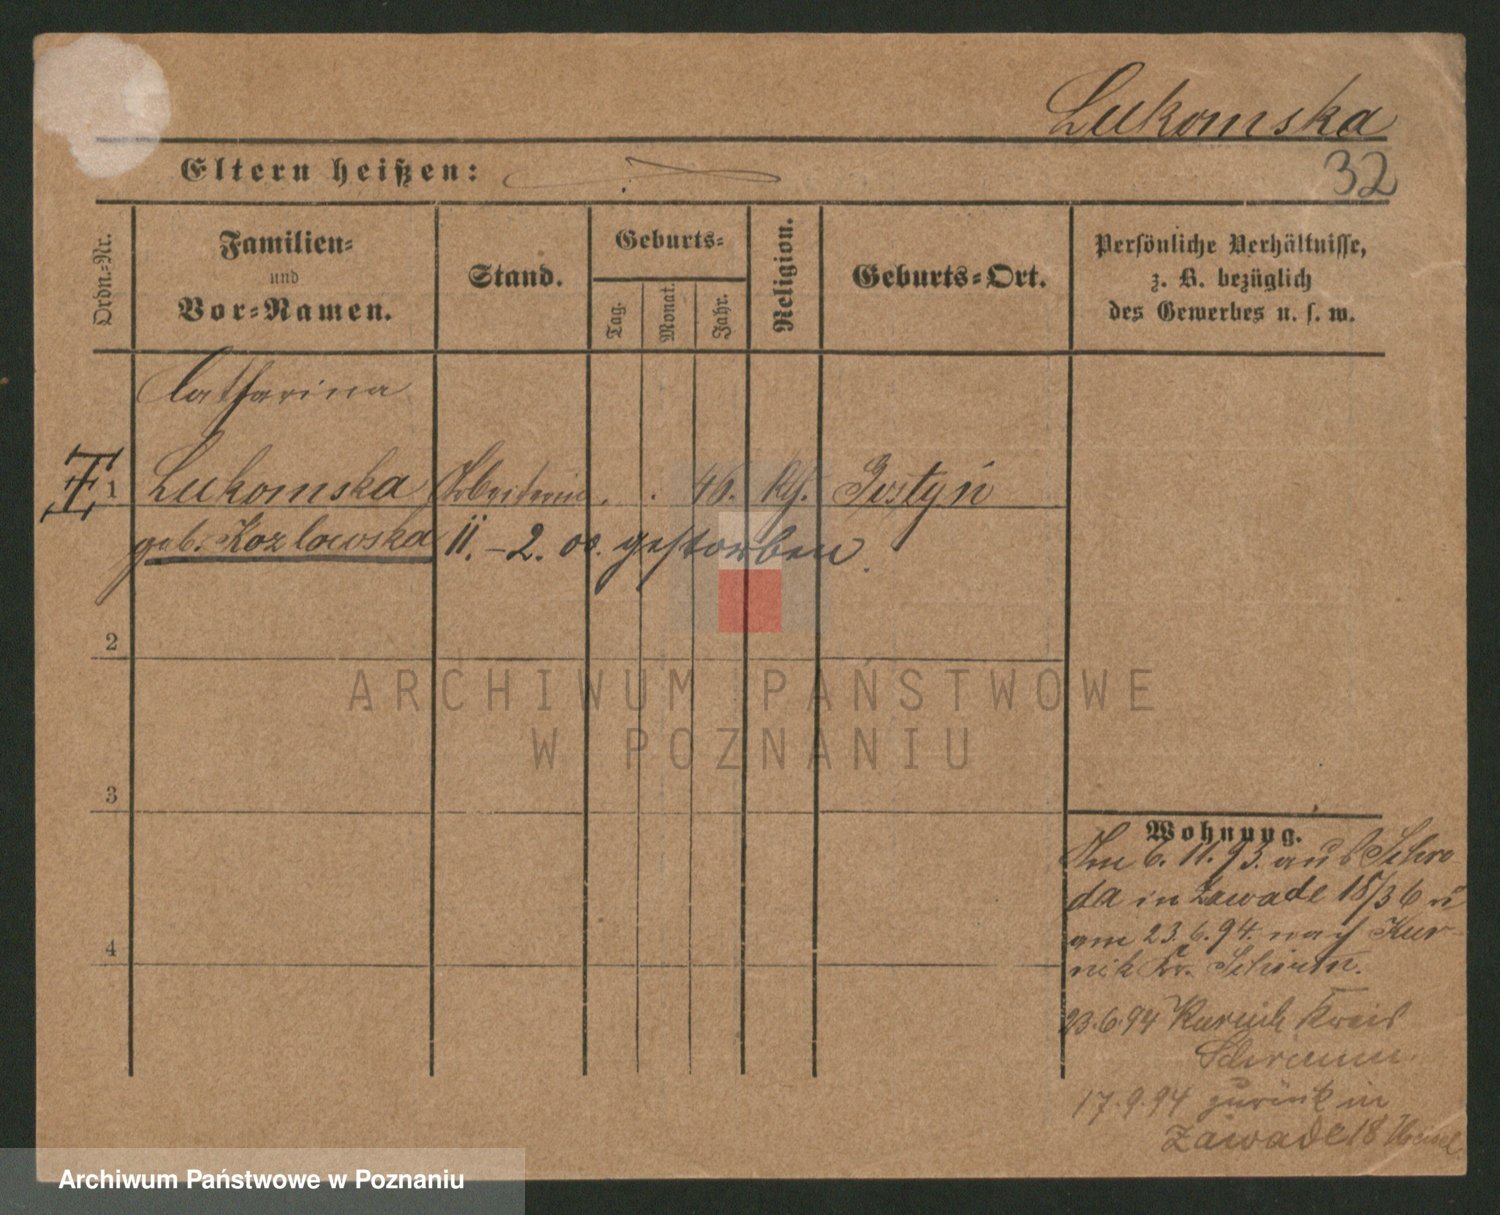 Lukomska
32
Eltern heißen:
Ordn.-Nr.
Familien-
und
Vor-Namen.
Stand.
Geburts-
Tag.
Monat.
Jahr.
Religion.
Geburts-Ort.
Persönliche Verhältnisse,
z. B. bezüglich
des Gewerbes u. s. w.
Catharina
1 Lukomska Arbeiterin 46. kth. Gostyń
geb. Kozlowska 11.-2. 00. gestorben.
2
3
4
Wohnung.
Am 6. 11. 93. aus Schro-
da in Zawade 18/36 u
am 23. 6. 94. nach Kur-
nik Kr. Schrim.
23.6.94 Kurnik Kreis
Schrimm
17.9.94 zurück in
Zawade 18
ARCHIWUM PAŃSTWOWE
W POZNANIU
Archiwum Państwowe w Poznaniu